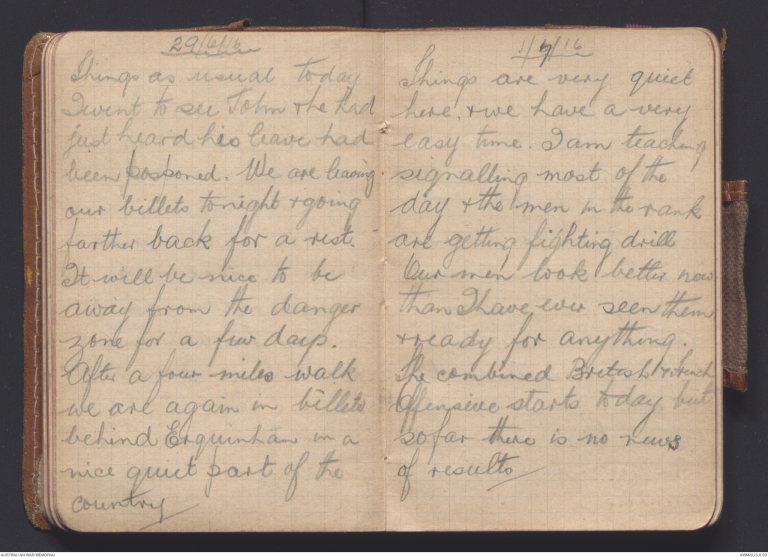 29/6/16
Things as usual today
I went to see John & he had
just heard his leave had
been posponed. We are leaving
our billets tonight & going
farther back for a rest.
It will be nice to be
away from the danger
zone for a few days.
After a four miles walk
we are again in billets
behind Erquinhan in a
nice quiet part of the
country
1/7/16
Things are very quiet
here, & we have a very
easy time. I am teaching
signalling most of the
day & the men in the rank
are getting fighting drill
Our men look better now
than I have ever seen them
& ready for anything.
The combined British & French
Offensive starts today but
so far there is no news
of results
AUSTRALIAN WAR MEMORIAL